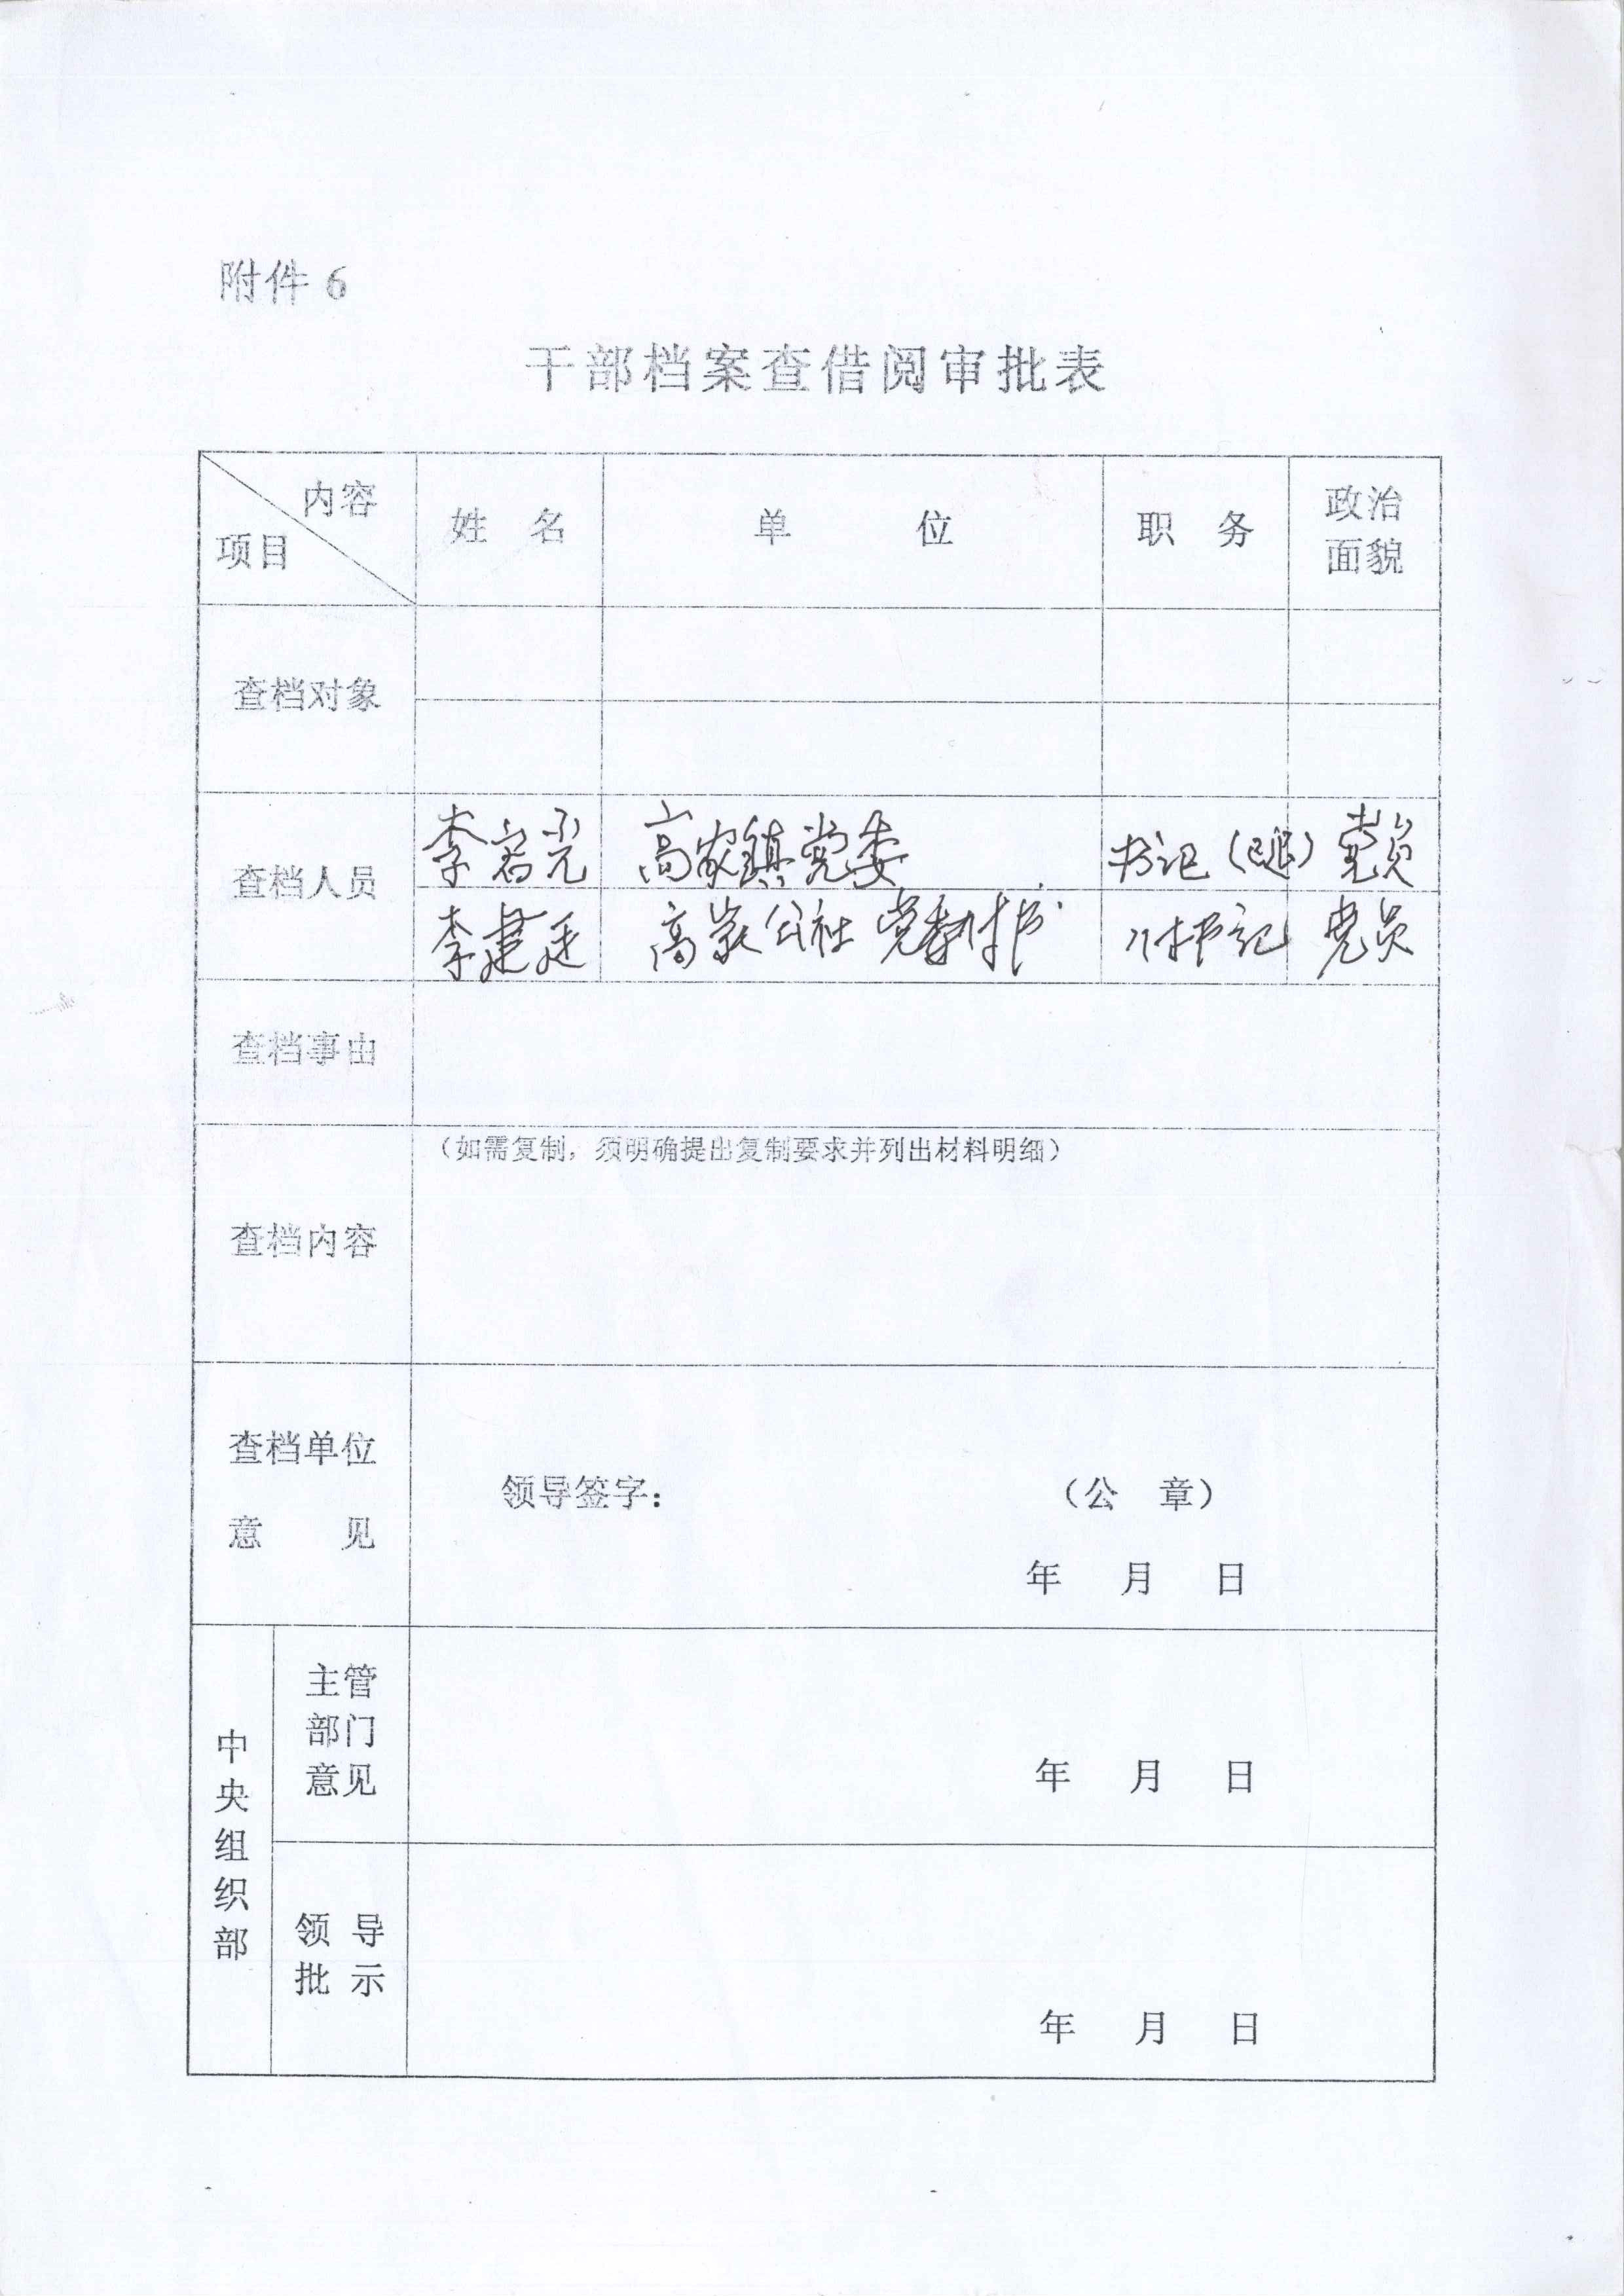 附件 6
干部档案查借阅审批表
内容
项目
姓 名
单 位
职 务
政治
面貌
查档对象
查档人员
李启光 高家镇党委 书记（退） 党员
李建廷 高家公社 党委付书 付书记 党员
查档事由
查档内容
（如需复制，须明确提出复制要求并列出材料明细）
查档单位
意 见
领导签字：
（公 章）
年 月 日
中央组织部
主管
部门
意见
年 月 日
领 导
批 示
年 月 日